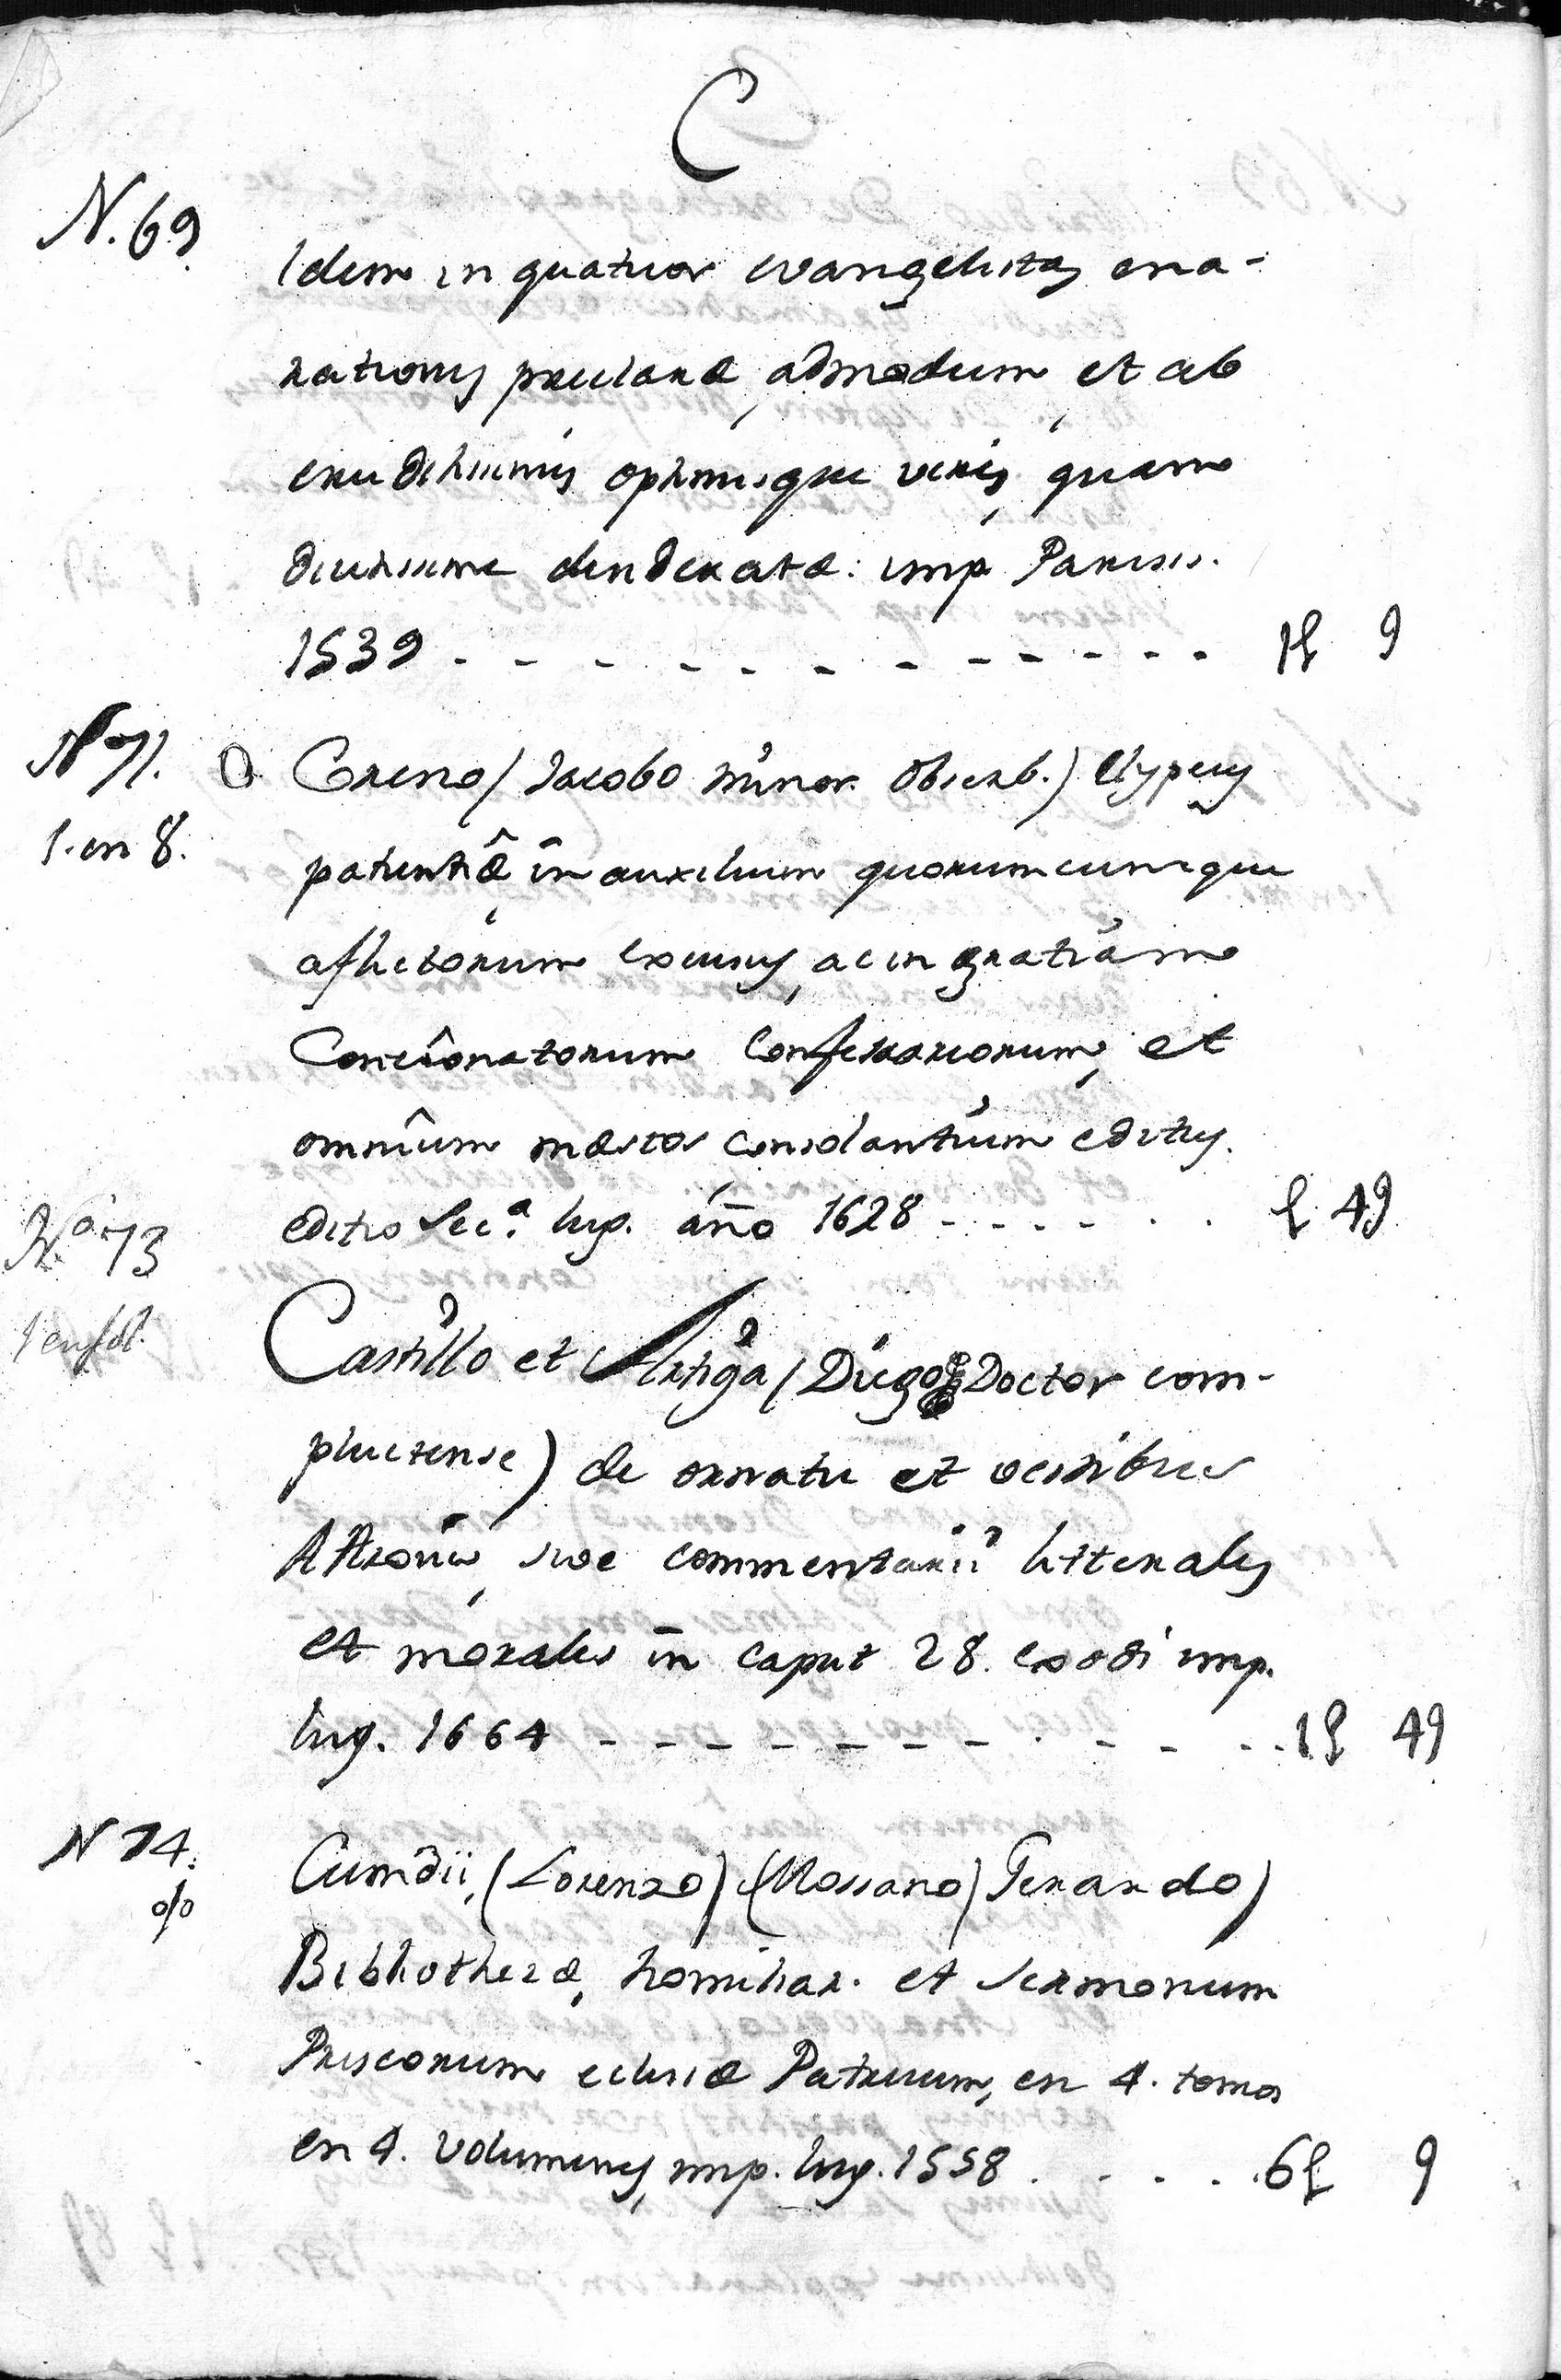 C
N. 69
Idem in quatuor evangelistas ena-
rationes preclaræ, admodum et ab
eruditissimis optimisque viris, quam
diutissime desideratæ: imp Parisis.
1539 - - - - - - - - - - - - 1£ 9
Nº 71.
1. en 8.
Coreno (Jacobo minor. Observ.) Clypeus
patientiæ, in auxilium quorumcumque
aflictorum excusus, ac in gratiam
Concionatorum Confessariorum, et
omnium mæstos consolantium editus.
editio Sec.ª lug. año 1628 - - - - - - £ 49
Nº 73
1 en fol.
Castillo et Artiga (Diego Doctor com-
plutense) de ornatu et vestibus
AAronis, sive commentarii litterales
et morales in caput 28. exodi imp.
lug. 1664 - - - - - - - - - - - - 1£ 49
N 74.
Cumdii, (Lorenzo) (Mossano) Gerardo)
Bibliothecæ, homiliar. et sermonum
Priscorum eclesiæ Patruum, en 4. tomos
en 4. Volumenes, imp. lug. 1558 . . . . . 6£ 9